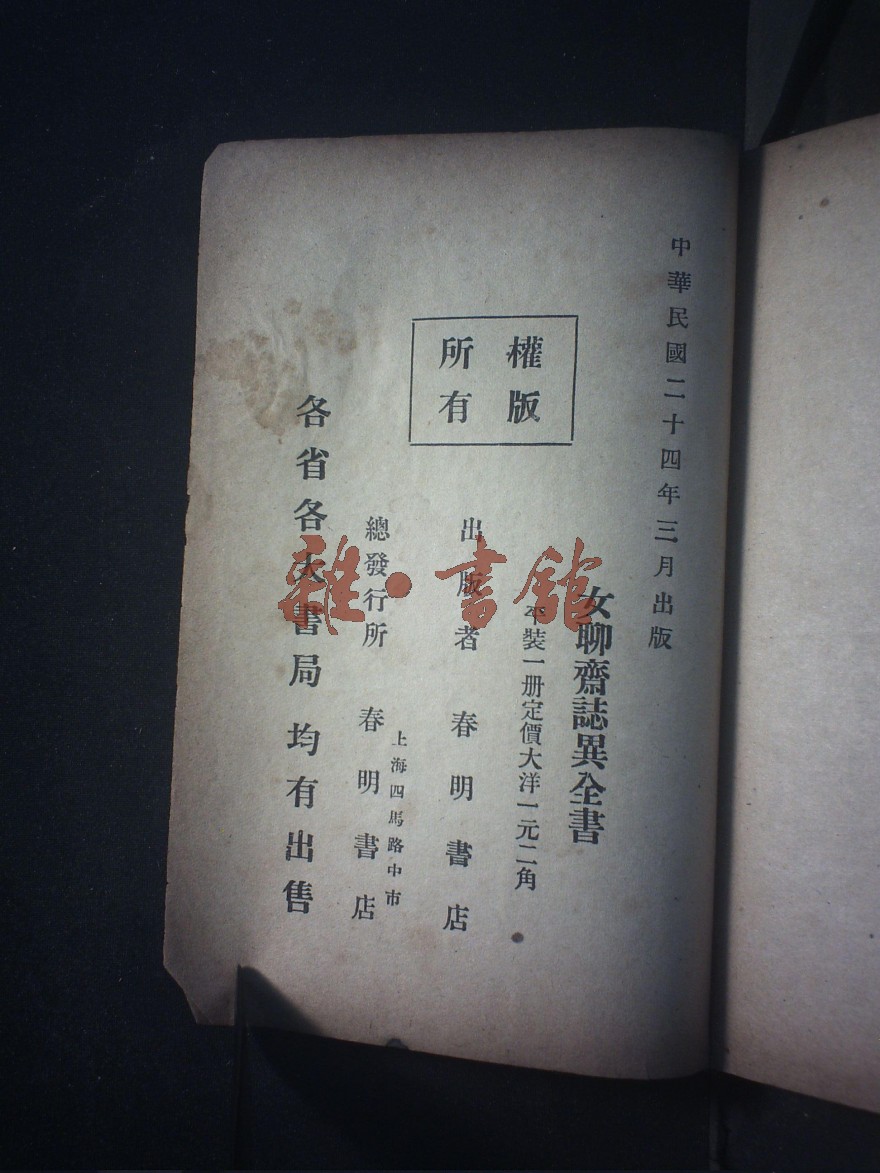 中華民國二十四年三月出版
女聊齋誌異全書
平裝一册定價大洋一元二角
權版
所有
出版者 春明書店
上海四馬路中市
總發行所 春明書店
各省各大書局均有出售
雜·書館